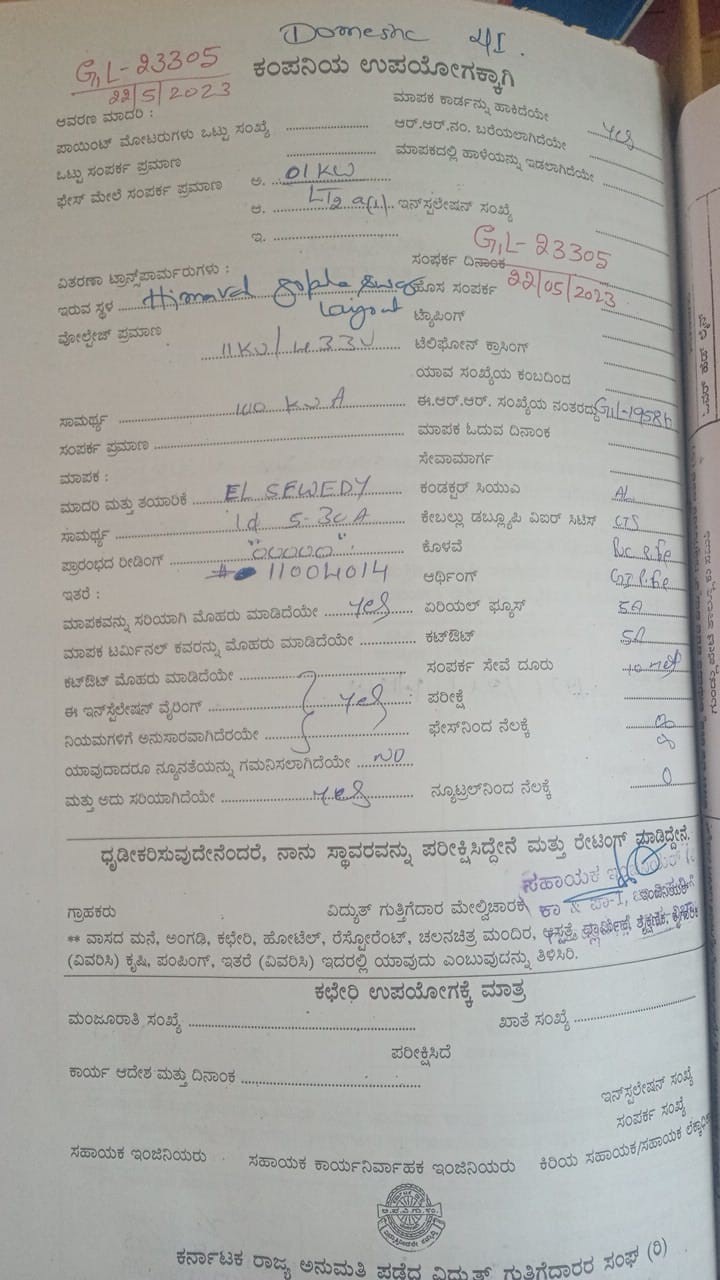 Domestic
G1L-23305
22/5/2023
ಕಂಪನಿಯ ಉಪಯೋಗಕ್ಕಾಗಿ
ಆವರಣ ಮಾದರಿ :
ಮಾಪಕ ಕಾರ್ಡನ್ನು ಹಾಕಿದೆಯೇ yes
ಪಾಯಿಂಟ್ ಮೋಟರುಗಳು ಒಟ್ಟು ಸಂಖ್ಯೆ
ಆರ್.ಆರ್.ನಂ. ಬರೆಯಲಾಗಿದೆಯೇ
ಒಟ್ಟು ಸಂಪರ್ಕ ಪ್ರಮಾಣ
ಮಾಪಕದಲ್ಲಿ ಹಾಳೆಯನ್ನು ಇಡಲಾಗಿದೆಯೇ
ಫೇಸ್ ಮೇಲೆ ಸಂಪರ್ಕ ಪ್ರಮಾಣ ಅ. 01 KW
ಆ. LT2 a(1) ಇನ್‌ಸ್ಟಲೇಷನ್ ಸಂಖ್ಯೆ
ಇ. G1L-23305
ವಿತರಣಾ ಟ್ರಾನ್ಸ್‌ಫಾರ್ಮರುಗಳು :
ಸಂಪರ್ಕ ದಿನಾಂಕ 22/05/2023
ಇರುವ ಸ್ಥಳ layout
ಹೊಸ ಸಂಪರ್ಕ
ವೋಲ್ಟೇಜ್ ಪ್ರಮಾಣ 11KV/433V
ಟ್ಯಾಪಿಂಗ್
ಟೆಲಿಫೋನ್ ಕ್ರಾಸಿಂಗ್
ಯಾವ ಸಂಖ್ಯೆಯ ಕಂಬದಿಂದ
ಸಾಮರ್ಥ್ಯ 100 KVA
ಈ.ಆರ್.ಆರ್. ಸಂಖ್ಯೆಯ ನಂತರದ್ದು
ಸಂಪರ್ಕ ಪ್ರಮಾಣ
ಮಾಪಕ ಓದುವ ದಿನಾಂಕ
ಮಾಪಕ :
ಸೇವಾಮಾರ್ಗ
ಮಾದರಿ ಮತ್ತು ತಯಾರಿಕೆ EL SEWEDY
ಕಂಡಕ್ಟರ್ ಸಿಯುಎ AL
ಸಾಮರ್ಥ್ಯ 5-30A
ಕೇಬಲ್ಲು ಡಬ್ಲ್ಯೂಪಿ ವಿಐರ್ ಸಿಟಿಸ್ CTS
ಪ್ರಾರಂಭದ ರೀಡಿಂಗ್ "00000"
ಕೊಳವೆ
# 11004014
ಇತರೆ :
ಆರ್ಥಿಂಗ್
ಮಾಪಕವನ್ನು ಸರಿಯಾಗಿ ಮೊಹರು ಮಾಡಿದೆಯೇ yes
ಏರಿಯಲ್ ಫ್ಯೂಸ್ 5A
ಮಾಪಕ ಟರ್ಮಿನಲ್ ಕವರನ್ನು ಮೊಹರು ಮಾಡಿದೆಯೇ
ಕಟ್‌ಔಟ್ 5A
ಕಟ್‌ಔಟ್ ಮೊಹರು ಮಾಡಿದೆಯೇ
ಸಂಪರ್ಕ ಸೇವೆ ದೂರು
ಈ ಇನ್‌ಸ್ಟೆಲೇಷನ್ ವೈರಿಂಗ್ yes
ಪರೀಕ್ಷೆ
ನಿಯಮಗಳಿಗೆ ಅನುಸಾರವಾಗಿದೆರಯೇ
ಫೇಸ್‌ನಿಂದ ನೆಲಕ್ಕೆ
ಯಾವುದಾದರೂ ನ್ಯೂನತೆಯನ್ನು ಗಮನಿಸಲಾಗಿದೆಯೇ NO
ಮತ್ತು ಅದು ಸರಿಯಾಗಿದೆಯೇ yes
ನ್ಯೂಟ್ರಲ್‌ನಿಂದ ನೆಲಕ್ಕೆ 0
ಧೃಡೀಕರಿಸುವುದೇನೆಂದರೆ, ನಾನು ಸ್ಥಾವರವನ್ನು ಪರೀಕ್ಷಿಸಿದ್ದೇನೆ ಮತ್ತು ರೇಟಿಂಗ್ ಮಾಡಿದ್ದೇನೆ.
ಸಹಾಯಕ
ಗ್ರಾಹಕರು
ವಿದ್ಯುತ್ ಗುತ್ತಿಗೆದಾರ ಮೇಲ್ವಿಚಾರಕ
** ವಾಸದ ಮನೆ, ಅಂಗಡಿ, ಕಛೇರಿ, ಹೋಟೆಲ್, ರೆಸ್ಟೋರೆಂಟ್, ಚಲನಚಿತ್ರ ಮಂದಿರ, ಆಸ್ಪತ್ರೆ,
(ವಿವರಿಸಿ) ಕೃಷಿ, ಪಂಪಿಂಗ್, ಇತರೆ (ವಿವರಿಸಿ) ಇದರಲ್ಲಿ ಯಾವುದು ಎಂಬುವುದನ್ನು ತಿಳಿಸಿರಿ.
ಕಛೇರಿ ಉಪಯೋಗಕ್ಕೆ ಮಾತ್ರ
ಮಂಜೂರಾತಿ ಸಂಖ್ಯೆ
ಖಾತೆ ಸಂಖ್ಯೆ
ಪರೀಕ್ಷಿಸಿದೆ
ಕಾರ್ಯ ಆದೇಶ ಮತ್ತು ದಿನಾಂಕ
ಇನ್‌ಸ್ಟಲೇಷನ್ ಸಂಖ್ಯೆ
ಸಂಪರ್ಕ ಸಂಖ್ಯೆ
ಸಹಾಯಕ ಇಂಜಿನಿಯರು ಸಹಾಯಕ ಕಾರ್ಯನಿರ್ವಾಹಕ ಇಂಜಿನಿಯರು ಕಿರಿಯ ಸಹಾಯಕ/ಸಹಾಯಕ
ಕರ್ನಾಟಕ ರಾಜ್ಯ ಅನುಮತಿ ಪಡೆದ ವಿದ್ಯುತ್ ಗುತ್ತಿಗೆದಾರರ ಸಂಘ (ರಿ)